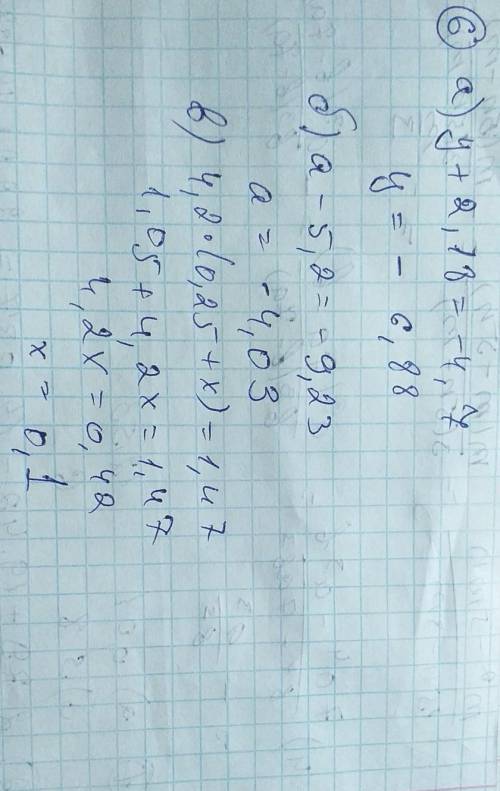 6 а) y + 2,18 = -4,7
y = - 6,88
б) a - 5,2 = -9,23
a = -4,03
в) 4,2·(0,25+x) = 1,47
1,05 + 4,2x = 1,47
4,2x = 0,42
x = 0,1